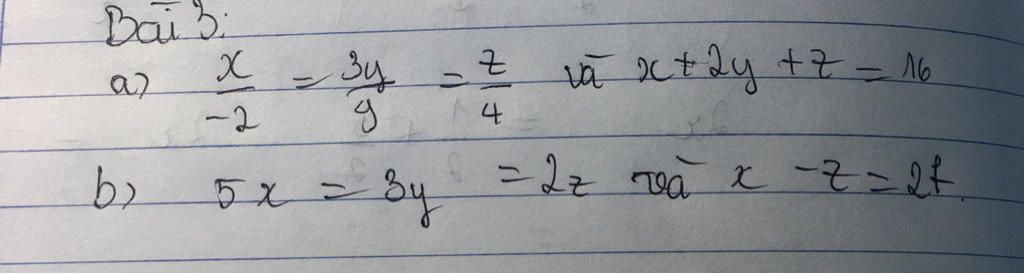 Bài 3:
a) x/-2 = 3y/9 = z/4 và x + 2y + z = 16
b) 5x = 3y = 2z và x - z = 27.